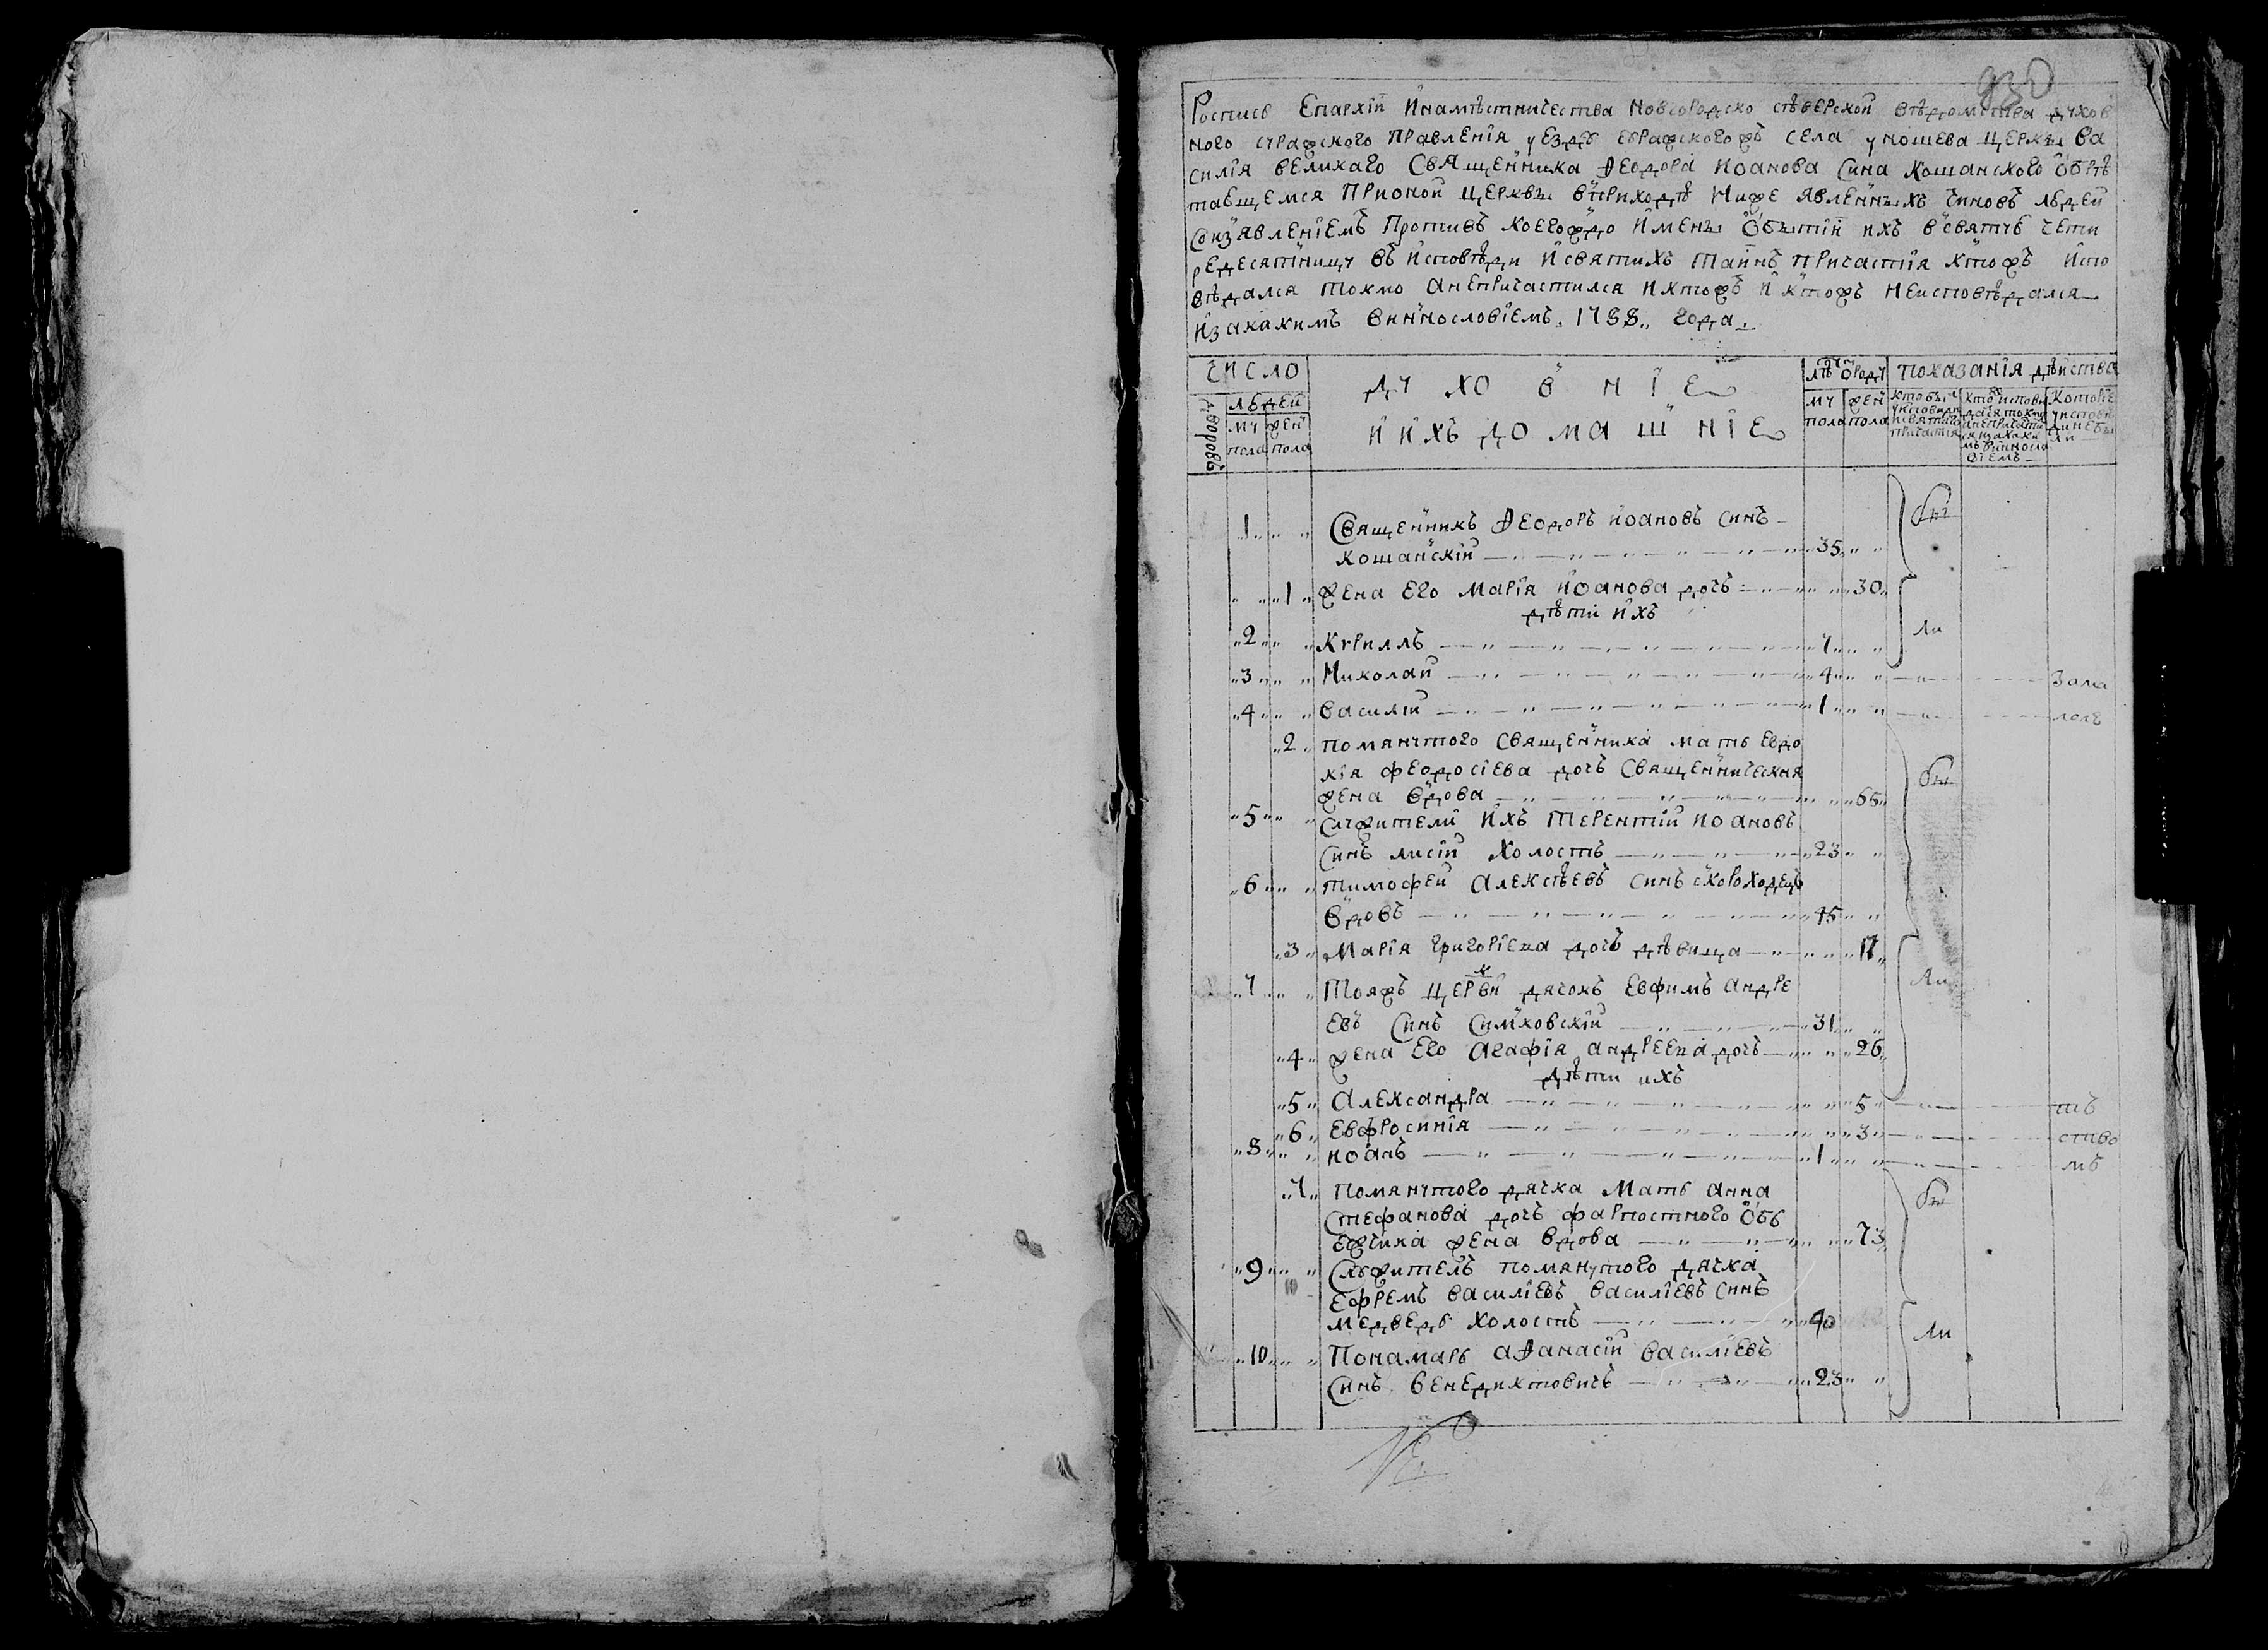 930
Роспись Епархіи Инамѣстничества Новгородско сѣверской вѣдомства духов
ного суражского правленія уезду суражскогожъ села уношева церкви ва
силія великаго Священника Ѳеодора Иоанова Сина Кошанского обрѣ
тающемся Прионой церкви вприходѣ Ниже явленныхъ чиновъ людей
Соизявленіемъ Противъ коегождо Имены Обытіи ихъ всвятую чети
редесятницу въ Исповѣди Исвятихъ таинъ причастія ктожъ Испо
вѣдался токмо анепричастился Иктожъ Неисповѣдался
Изакакимъ виннословіемъ. 1788,, года.
ЧИСЛО
ДУХОВНІЕ
Лѣтъ Отроду
Показанія дѣйства
дворовъ
людей
Иихъ домашніе
му пола
жен пола
му пола
жен пола
1 Священникъ Ѳеодоръ Иоановъ Синъ
Кошанскій 35
бы
1 Жена Его Марія Иоанова дочъ 30
дѣти ихъ
2 Кѵриллъ 7
ли
3 Николай 4 Зама
4 Василій 1 лолѣ
2 помянутого Священника мать Евдо
кія феодосіева дочъ Священническия
жена вдова 65
бы
5 Служители Ихъ Терентий Иоановъ
Синъ лисій Холостъ 23
6 тимофей Алексѣевъ Синъ скороходецъ
вдовъ 45
3 Марія григоріева дочъ дѣвица 17
7 Тояжъ церкви дячокъ Евфимъ Андре
евъ Синъ Симховскій 31
ли
4 жена Его Агафія андреева дочъ 26
Дѣти ихъ
5 Александра 5 тъ
6 Евфросинія 3 ство
8 Иоанъ 1 мъ
7 Помянутого дячка Мать анна
Стефанова дочъ фарпостного Объ
ежчика жена вдова 73
бы
9 Служитель помянутого дячка
Ефремъ Василіевъ Василіевъ Синъ
медведь Холостъ 40
10 Понамарь аѲанасій Василіевъ
Синъ Венедиктовичъ 23
ли